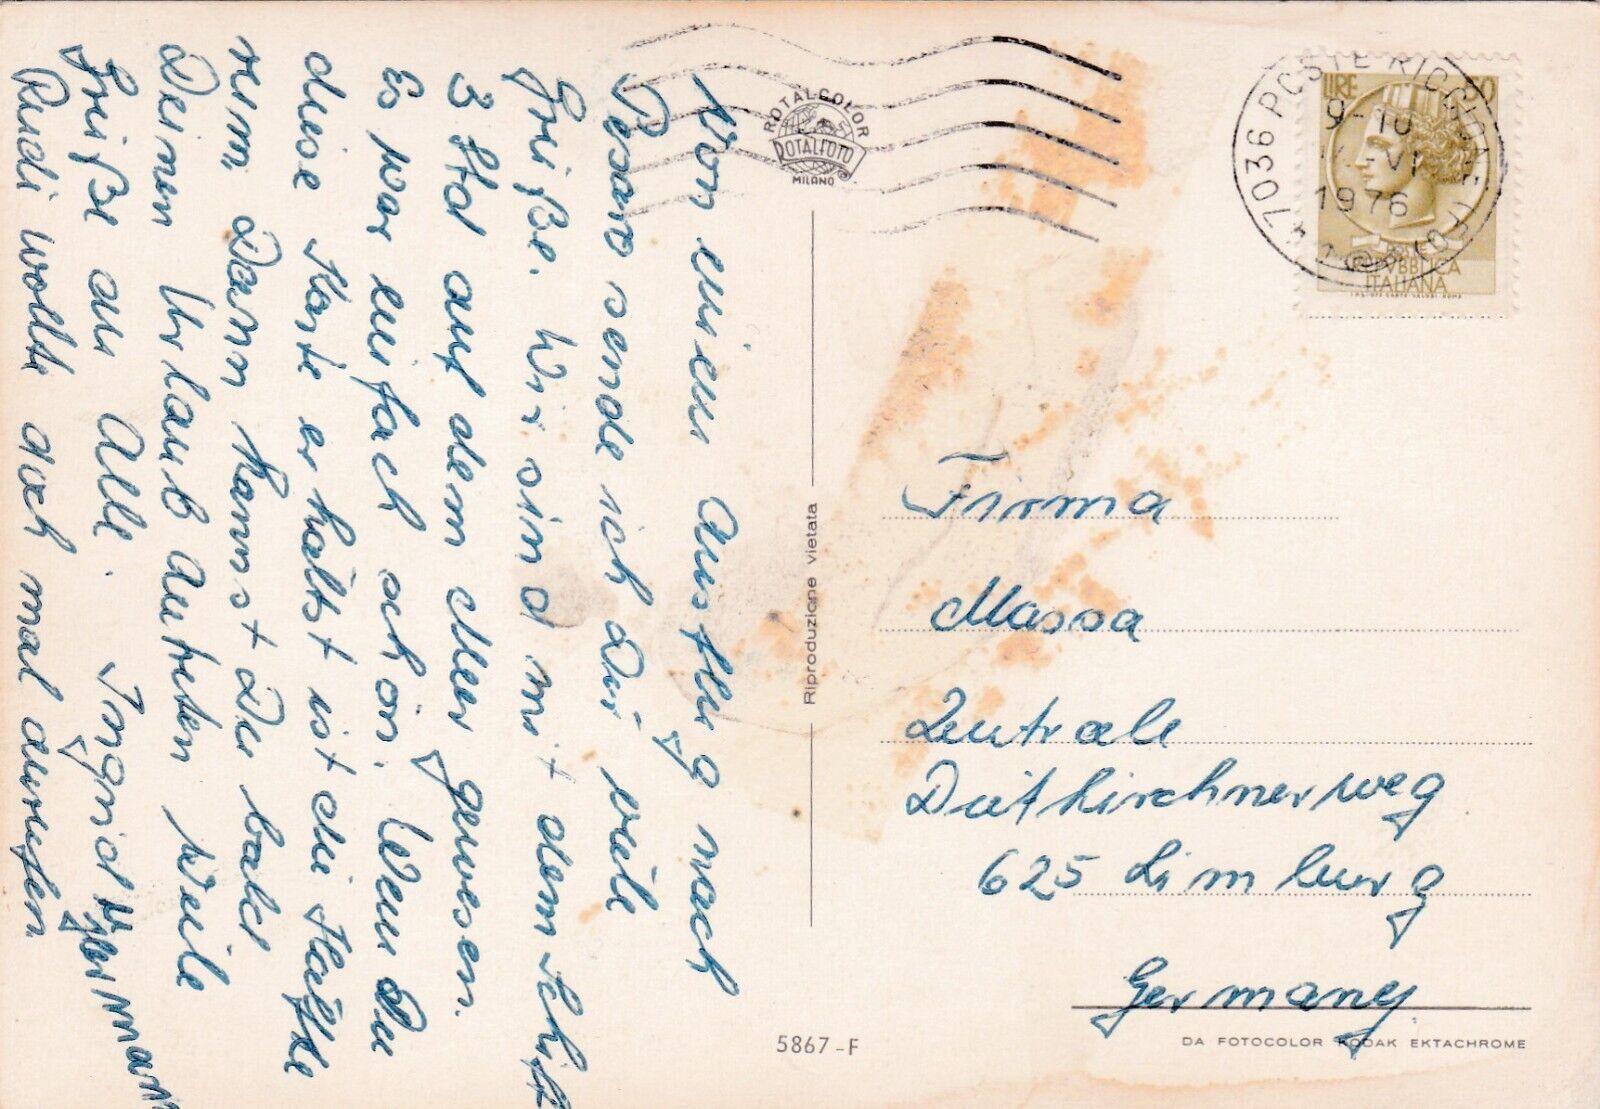 Von einem Ausflug nach
Pesaro sende ich Dir viele
Grüße. Wir sind mit dem Schiff
3 Std auf dem Meer gewesen.
Es war einfach schön. Wenn Du
diese Karte erhältst ist die Hälfte
rum. Dann kannst Du bald
Deinen Urlaub antreten. Viele
Grüße an Alle. Ingrid Herrmann
Rudi wollte doch mal anrufen.
ROTALCOLOR
ROTALFOTO
MILANO
Riproduzione vietata
5867-F
LIRE 50
47036 POSTE RICCIONE (FO)
9-10
VI
1976
REPVBBLICA
ITALIANA
Firma
Massa
Zentrale
Dietkirchnerweg
625 Limburg
Germany
DA FOTOCOLOR KODAK EKTACHROME